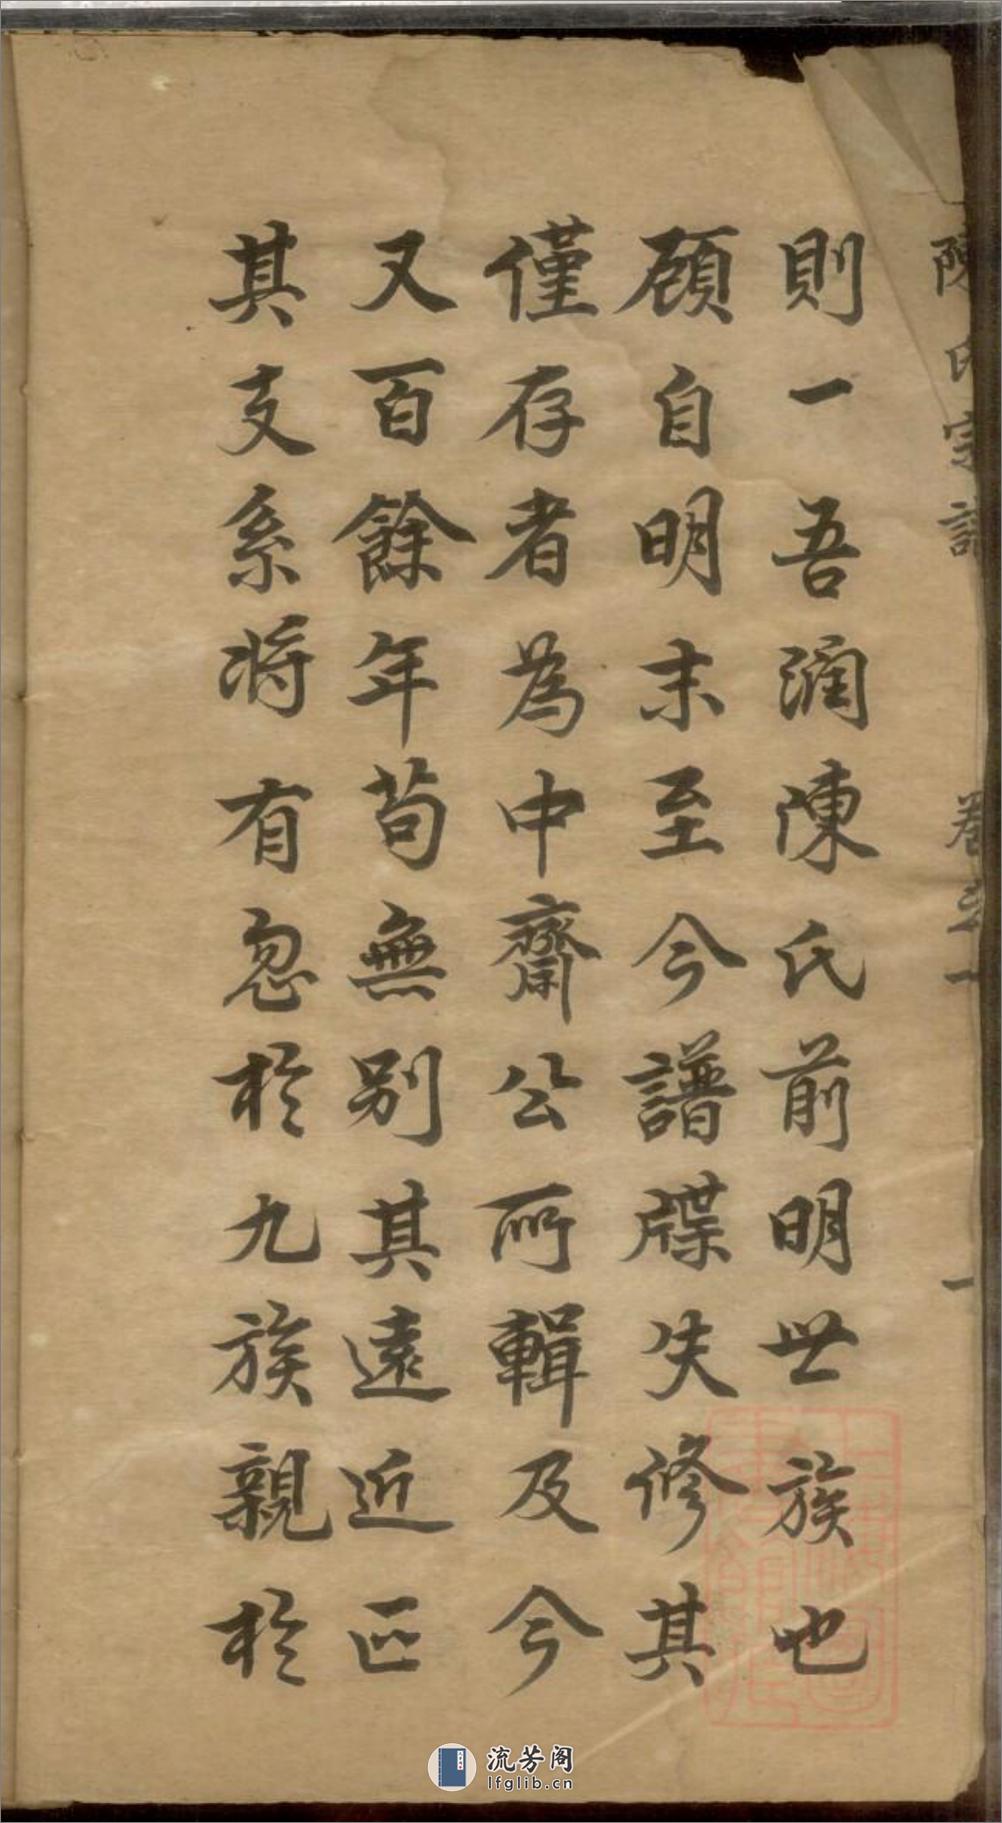 陳氏宗譜 卷之一 一
則一吾潤陳氏前明世族也
顧自明末至今譜牒失修其
僅存者為中齋公所輯及今
又百餘年苟無別其遠近正
其支系將有忽於九族親於
流芳阁
lfglib.cn